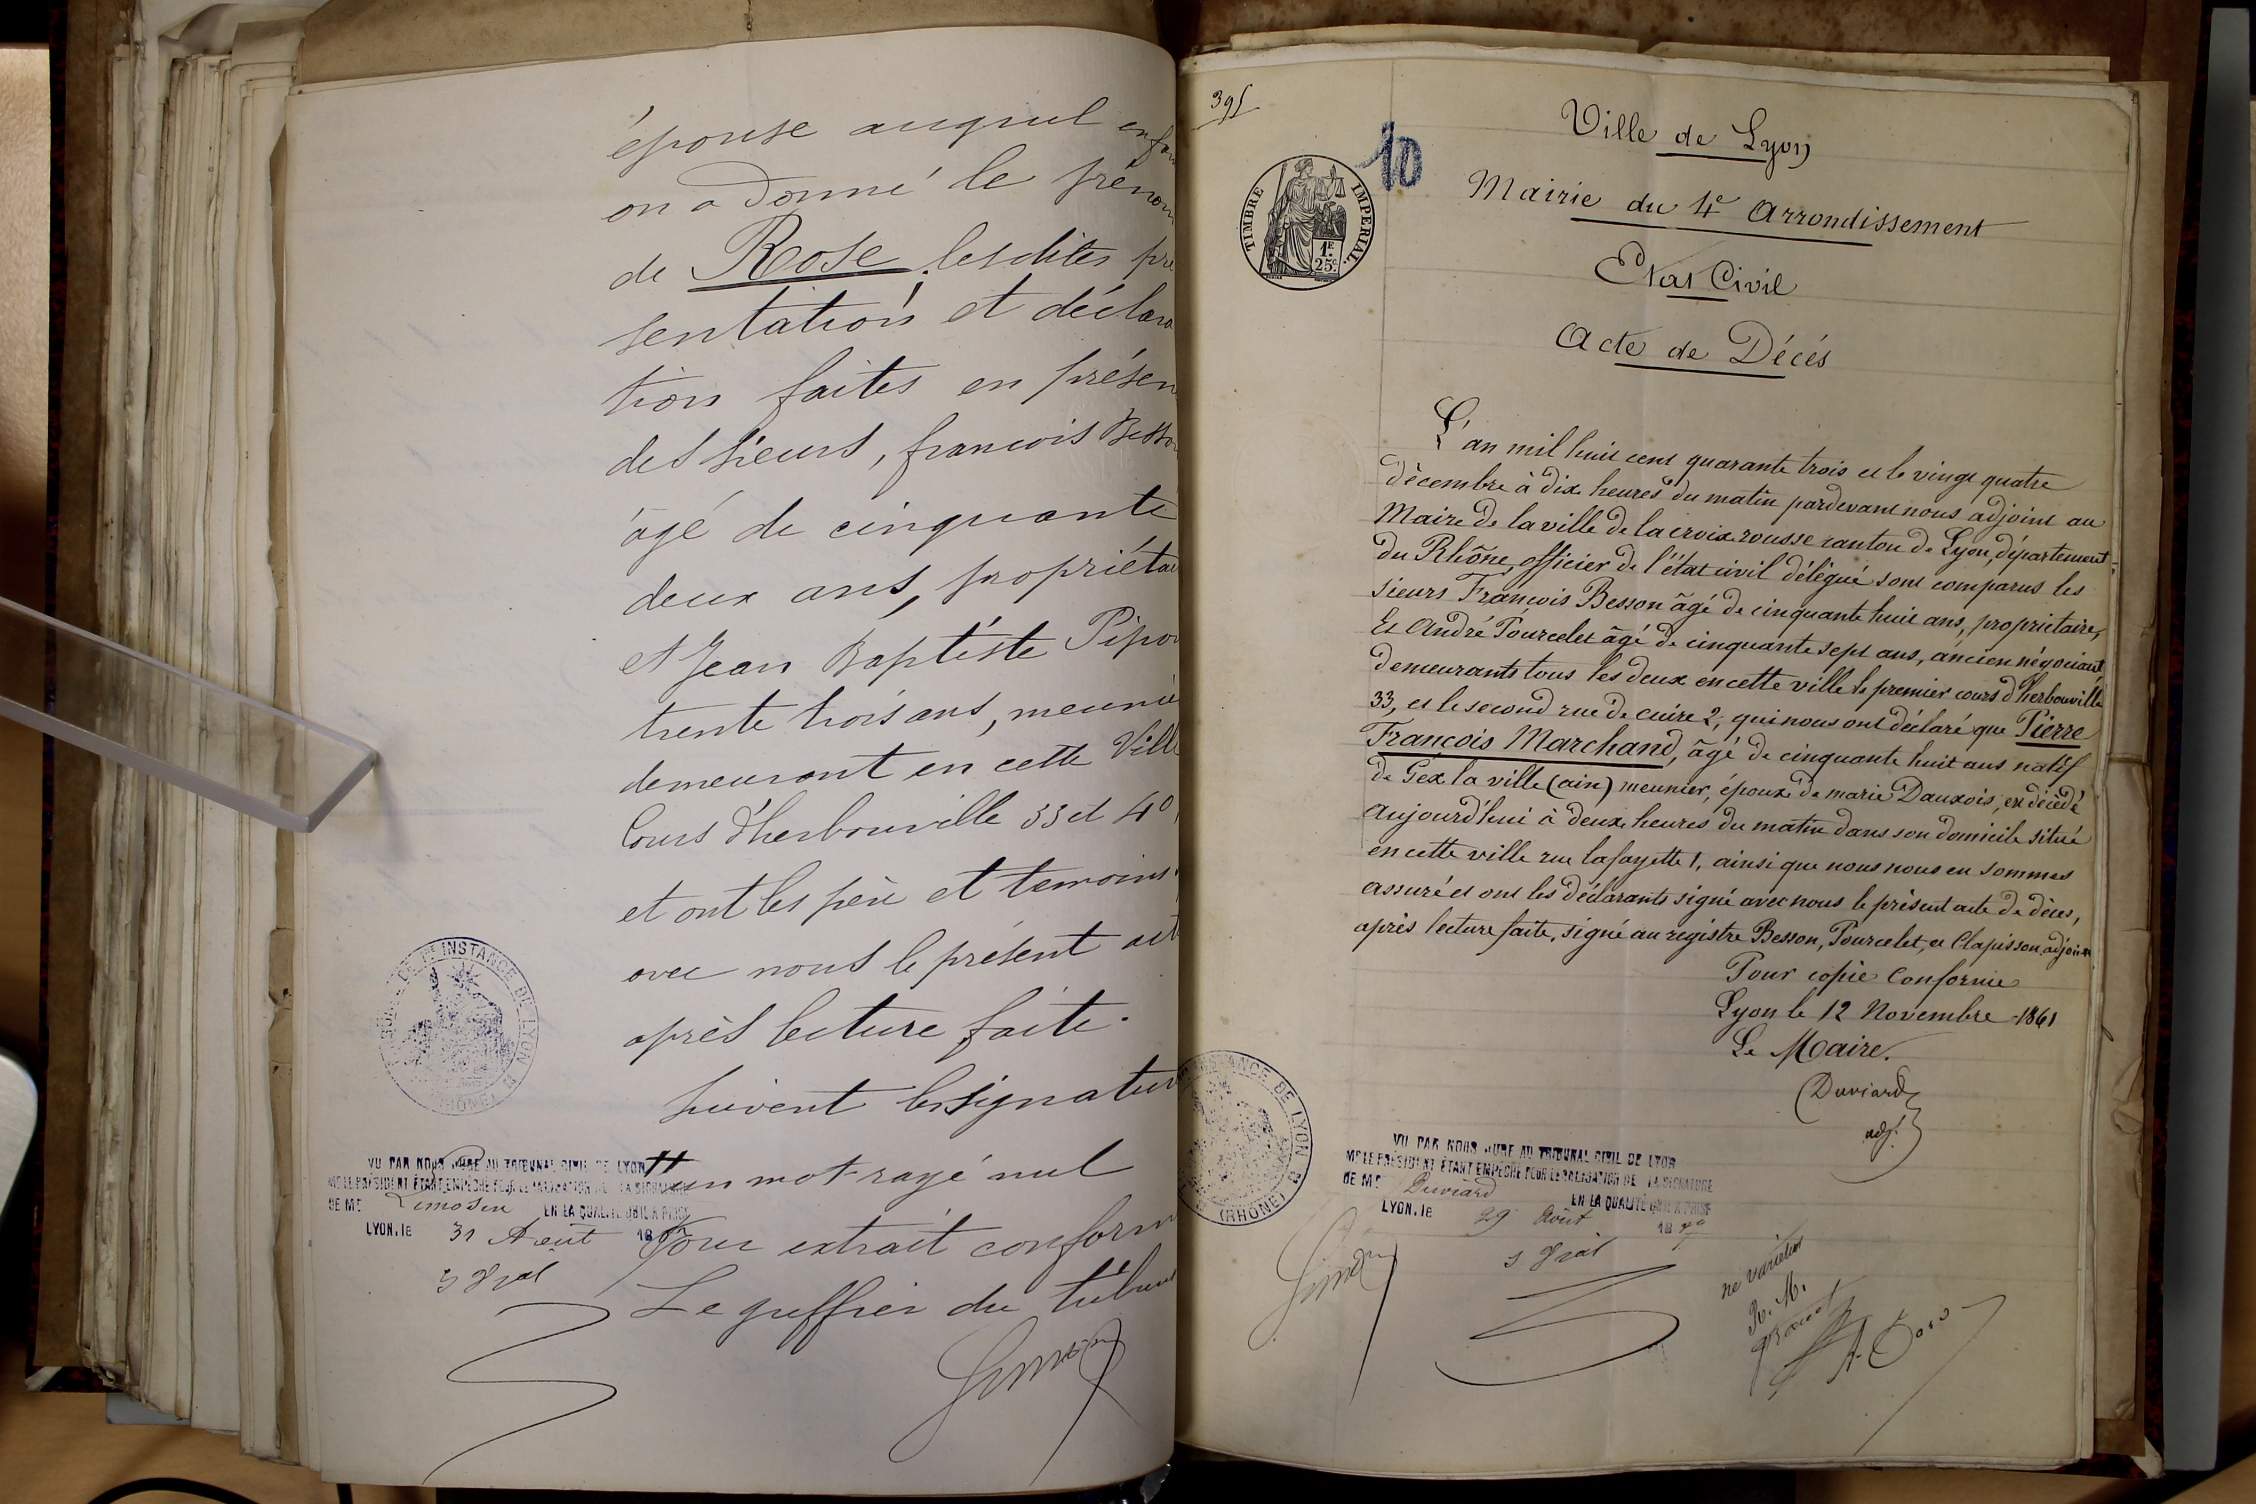 épouse auquel enfan
on a donné le prénom
de Rose, lesdites pré
sentation et déclara
tion faites en présen
des sieurs, françois Besson
âgé de cinquante
deux ans, propriétai
et Jean Baptiste Pipon
trente trois ans, meunie
demeurant en cette Ville
Cours d'herbouville 33 et 40
et ont les père et temoins
avec nous le présent act
après lecture faite.
suivent les signatur
un mot rayé nul
Pour extrait conform
Le greffier du tribun
DE 1RE INSTANCE DE LYON
(RHÔNE)
VU PAR NOUS JUGE AU TRIBUNAL CIVIL DE LYON
MR LE PRÉSIDENT ÉTANT EMPÊCHÉ POUR LÉGALISATION DE LA SIGNATURE
DE MR Limosin EN LA QUALITÉ QU'IL A PRISE
LYON, le 31 Août 18
395
10
TIMBRE IMPERIAL
1F
25c
Ville de Lyon
Mairie du 4e Arrondissement
Etat Civil
Acte de Décés
L'an mil huit cent quarante trois et le vingt quatre
décembre à dix heures du matin pardevant nous adjoint au
Maire de la ville de la croix rousse canton de Lyon, département
du Rhône, officier de l'état civil délégué sont comparus les
sieurs François Besson âgé de cinquante huit ans, propriétaire,
Et André Pourcelet âgé de cinquante sept ans, ancien négociant
demeurants tous les deux en cette ville le premier cours d'herbouville
33, et le second rue de cuire 2, qui nous ont déclaré que Pierre
François Marchand, âgé de cinquante huit ans natif
de Gex la ville (ain) meunier, époux de marie Dauxois, est décédé
aujourd'hui à deux heures du matin dans son domicile situé
en cette ville rue lafayette 1, ainsi que nous nous en sommes
assuré et ont les déclarants signé avec nous le présent acte de décès,
après lecture faite, signé au registre Besson, Pourcelet, et Clapisson adjoint
Pour copie Conforme
Lyon le 12 Novembre 1861
Le Maire.
Duviard
adj.
INSTANCE DE LYON
(RHÔNE)
VU PAR NOUS JUGE AU TRIBUNAL CIVIL DE LYON
MR LE PRÉSIDENT ÉTANT EMPÊCHÉ POUR LÉGALISATION DE LA SIGNATURE
DE MR Duviard EN LA QUALITÉ QU'IL A PRISE
LYON, le 29 Août 18
ne varietur